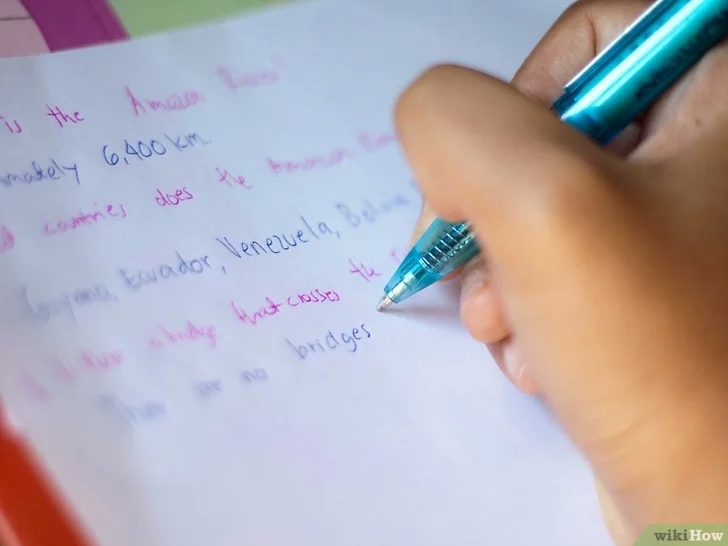 is the Amazon River
mately 6,400 km.
countries does the Amazon
Guyana, Ecuador, Venezuela, Bolivia
a bridge that crosses the
There are no bridges
wikiHow